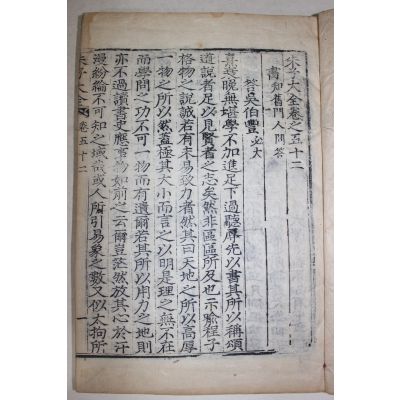 朱子大全卷之五十二
書 知舊門人問答
答吳伯豐 必大
熹衰晚無堪學不加進足下過聽辱先以書其所以稱頌
道說者足以見賢者之志矣然非區區所及也示喩程子
格物之說誠若有未易致力者然其曰天地之所以高厚
一物之所以然蓋極其大小而言之以明是理之無不在
而學問之功不可一物而有遺爾若其所以用力之地則
亦不過讀書史應事物如前之云爾豈茫然放其心於汗
漫紛綸不可知之域哉或人所引易象之數又似太拘所
朱子大全 卷五十二